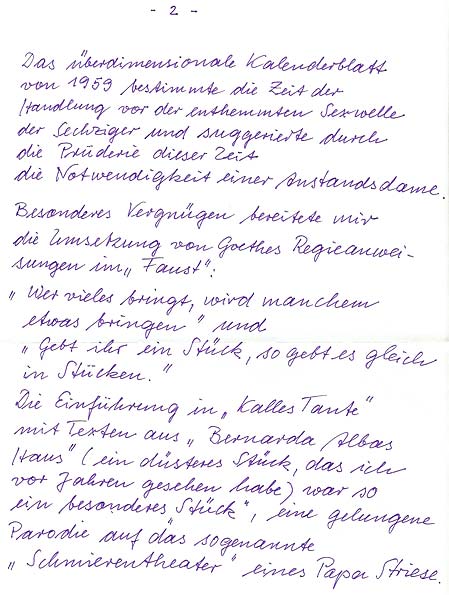 - 2 -
Das überdimensionale Kalenderblatt
von 1959 bestimmte die Zeit der
Handlung vor der enthemmten Sexwelle
der Sechziger und suggerierte durch
die Prüderie dieser Zeit
die Notwendigkeit einer Anstandsdame.
Besonderes Vergnügen bereitete mir
die Umsetzung von Goethes Regieanwei-
sungen im „Faust":
„Wer vieles bringt, wird manchem
etwas bringen" und
„Gebt ihr ein Stück, so gebt es gleich
in Stücken."
Die Einführung in „Kalles Tante"
mit Texten aus „Bernarda Albas
Haus" (ein düsteres Stück, das ich
vor Jahren gesehen habe) war so
ein besonderes Stück", eine gelungene
Parodie auf das sogenannte
„Schmierentheater" eines Papa Striese.